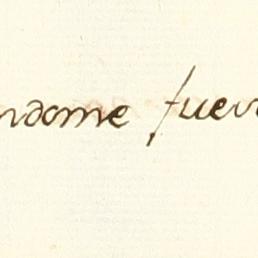 ndome fuer